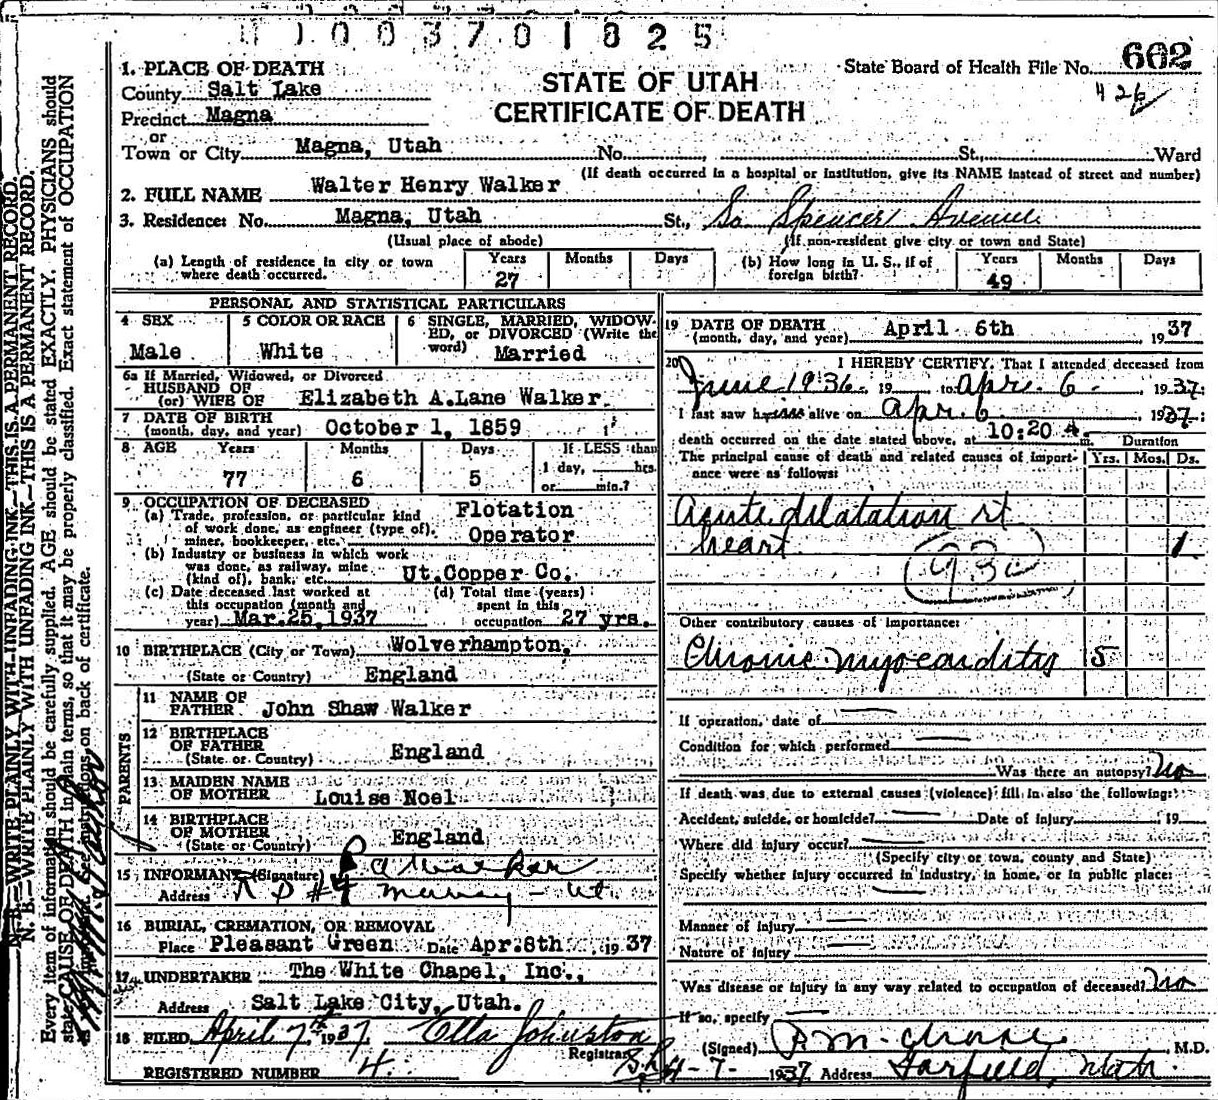 003701825
STATE OF UTAH
CERTIFICATE OF DEATH
State Board of Health File No. 662
426
1. PLACE OF DEATH
County Salt Lake
Precinct Magna
or
Town or City Magna, Utah No. , St., Ward
(If death occurred in a hospital or institution, give its NAME instead of street and number)
2. FULL NAME Walter Henry Walker
3. Residence: No. Magna, Utah St., So Spencer Avenue
(Usual place of abode) (If non-resident give city or town and State)
(a) Length of residence in city or town where death occurred. Years 27 Months Days
(b) How long in U. S., if of foreign birth? Years 49 Months Days
PERSONAL AND STATISTICAL PARTICULARS
4 SEX Male
5 COLOR OR RACE White
6 SINGLE, MARRIED, WIDOWED, or DIVORCED (Write the word) Married
6a If Married, Widowed, or Divorced
HUSBAND OF
(or) WIFE OF Elizabeth A.Lane Walker
7 DATE OF BIRTH
(month, day, and year) October 1, 1859
8 AGE Years 77 Months 6 Days 5 If LESS than 1 day, hrs. or min.?
9 OCCUPATION OF DECEASED
(a) Trade, profession, or particular kind of work done, as engineer (type of), miner, bookkeeper, etc. Flotation Operator
(b) Industry or business in which work was done, as railway, mine (kind of), bank, etc. Ut.Copper Co.
(c) Date deceased last worked at this occupation (month and year) Mar.25,1937
(d) Total time (years) spent in this occupation 27 yrs.
10 BIRTHPLACE (City or Town) Wolverhampton,
(State or Country) England
PARENTS
11 NAME OF FATHER John Shaw Walker
12 BIRTHPLACE OF FATHER
(State or Country) England
13 MAIDEN NAME OF MOTHER Louise Noel
14 BIRTHPLACE OF MOTHER
(State or Country) England
15 INFORMANT (Signature) Walker
Address R D #4 Murray - Ut
16 BURIAL, CREMATION, OR REMOVAL
Place Pleasant Green Date Apr.8th 1937
17 UNDERTAKER The White Chapel, Inc.,
Address Salt Lake City, Utah.
18 FILED April 7th 1937 Ella Johnston
Registrar
REGISTERED NUMBER 4.
19 DATE OF DEATH
(month, day, and year) April 6th 1937
20 I HEREBY CERTIFY, That I attended deceased from
June 1936 19 to Apr. 6 1937
I last saw him alive on Apr. 6 1937
death occurred on the date stated above, at 10:20 A. m.
The principal cause of death and related causes of importance were as follows:
Duration
Yrs. Mos. Ds.
Acute dilatation rt
heart 1
93c
Other contributory causes of importance:
Chronic myocarditis 5
If operation, date of
Condition for which performed
Was there an autopsy? No
If death was due to external causes (violence) fill in also the following:
Accident, suicide, or homicide? Date of Injury 19
Where did injury occur?
(Specify city or town, county and State)
Specify whether injury occurred in industry, in home, or in public place:
Manner of Injury
Nature of Injury
Was disease or injury in any way related to occupation of deceased? No
If so, specify
(Signed) , M.D.
4-7- 1937 Address Garfield, Utah.
N. B.—WRITE PLAINLY WITH UNFADING INK—THIS IS A PERMANENT RECORD.
Every item of information should be carefully supplied. AGE should be stated EXACTLY. PHYSICIANS should
state CAUSE OF DEATH in plain terms, so that it may be properly classified. Exact statement of OCCUPATION
is important. See instructions on back of certificate.